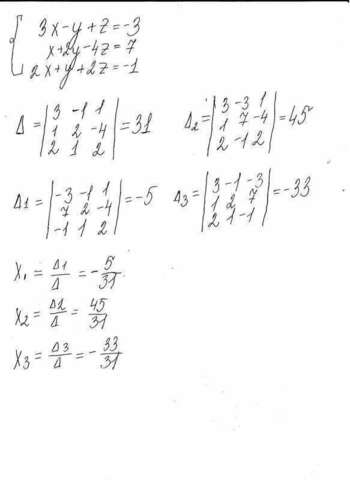 3x-y+z=-3
x+2y-4z=7
2x+y+2z=-1
Δ = |3 -1 1| = 31
|1 2 -4|
|2 1 2|
Δ2 = |3 -3 1| = 45
|1 7 -4|
|2 -1 2|
Δ1 = |-3 -1 1| = -5
|7 2 -4|
|-1 1 2|
Δ3 = |3 -1 -3| = -33
|1 2 7|
|2 1 -1|
X1 = Δ1/Δ = -5/31
X2 = Δ2/Δ = 45/31
X3 = Δ3/Δ = -33/31